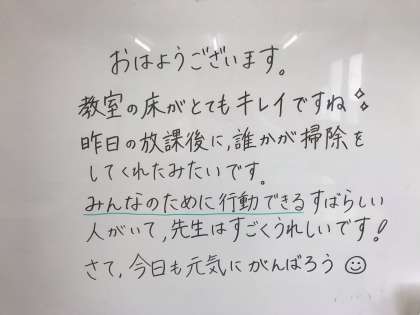 おはようございます。
教室の床がとてもキレイですね✧✧
昨日の放課後に,誰かが掃除を
してくれたみたいです。
みんなのために行動できるすばらしい
人がいて,先生はすごくうれしいです!
さて,今日も元気にがんばろう☺